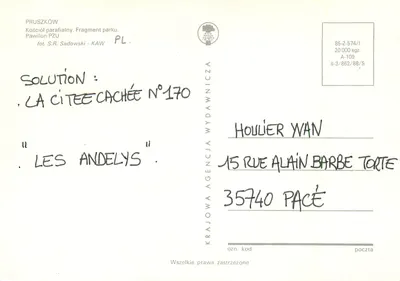 PRUSZKÓW
Kościół parafialny. Fragment parku.
Pawilon PZU
fot. S.R. Sadowski - KAW
PL.
SOLUTION :
. LA CITEE CACHÉE N°170
"LES ANDELYS".
KRAJOWA AGENCJA WYDAWNICZA
HOULIER YVAN
15 RUE ALAIN BARBE TORTE
35740 PACÉ
poczta
Wszelkie prawa zastrzeżone